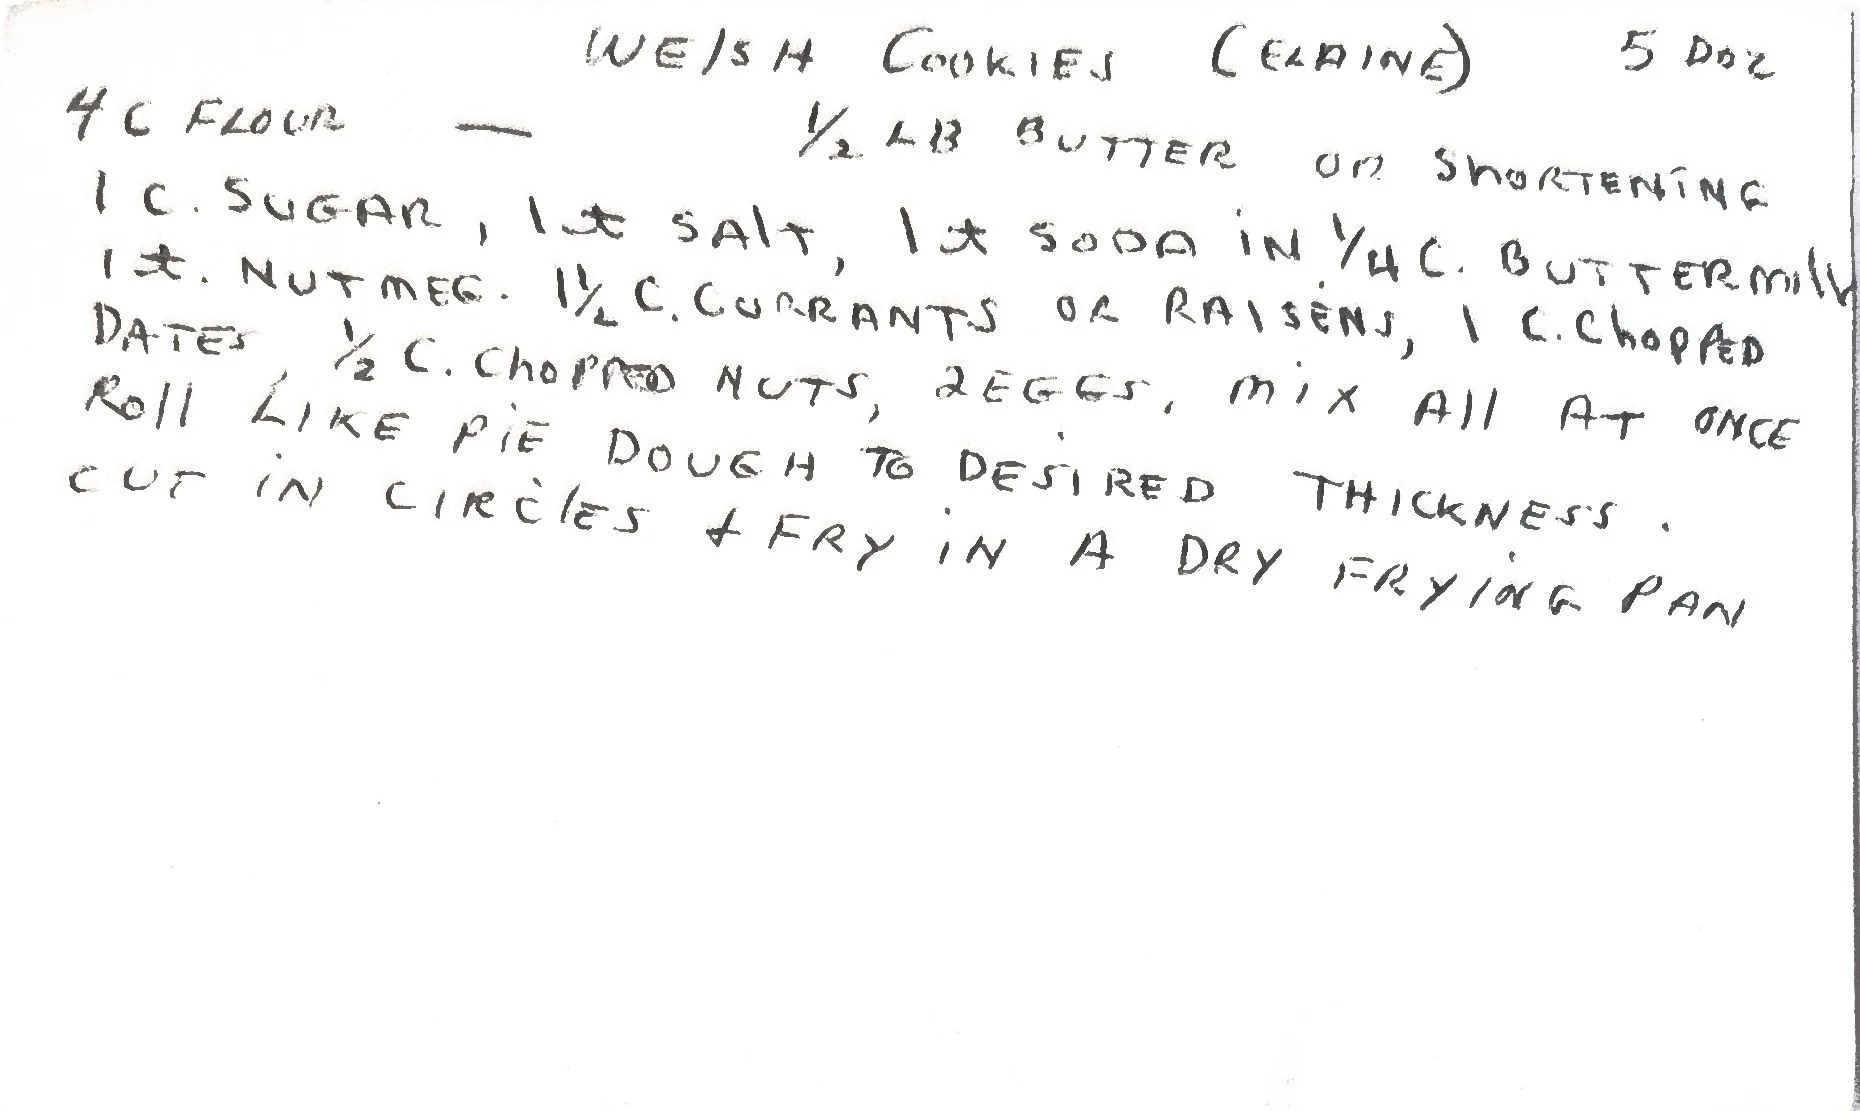 WElSH COOKIES (ELAINE) 5 DOZ
4 C FLOUR — 1/2 LB BUTTER OR ShORTENING
1 C. SUGAR, 1 t SAlT, 1 t SODA iN 1/4 C. BUTTERMilk
1 t. NUTMEG. 1 1/2 C. CURRANTS OR RAISENS, 1 C. ChOPPED
DATES, 1/2 C. ChOPPED NUTS, 2 EGGS, MiX All AT ONCE
Roll LIKE PiE DOUGH TO DESIRED THICKNESS.
CUT iN CIRClES & FRY iN A DRY FRYiNG PAN